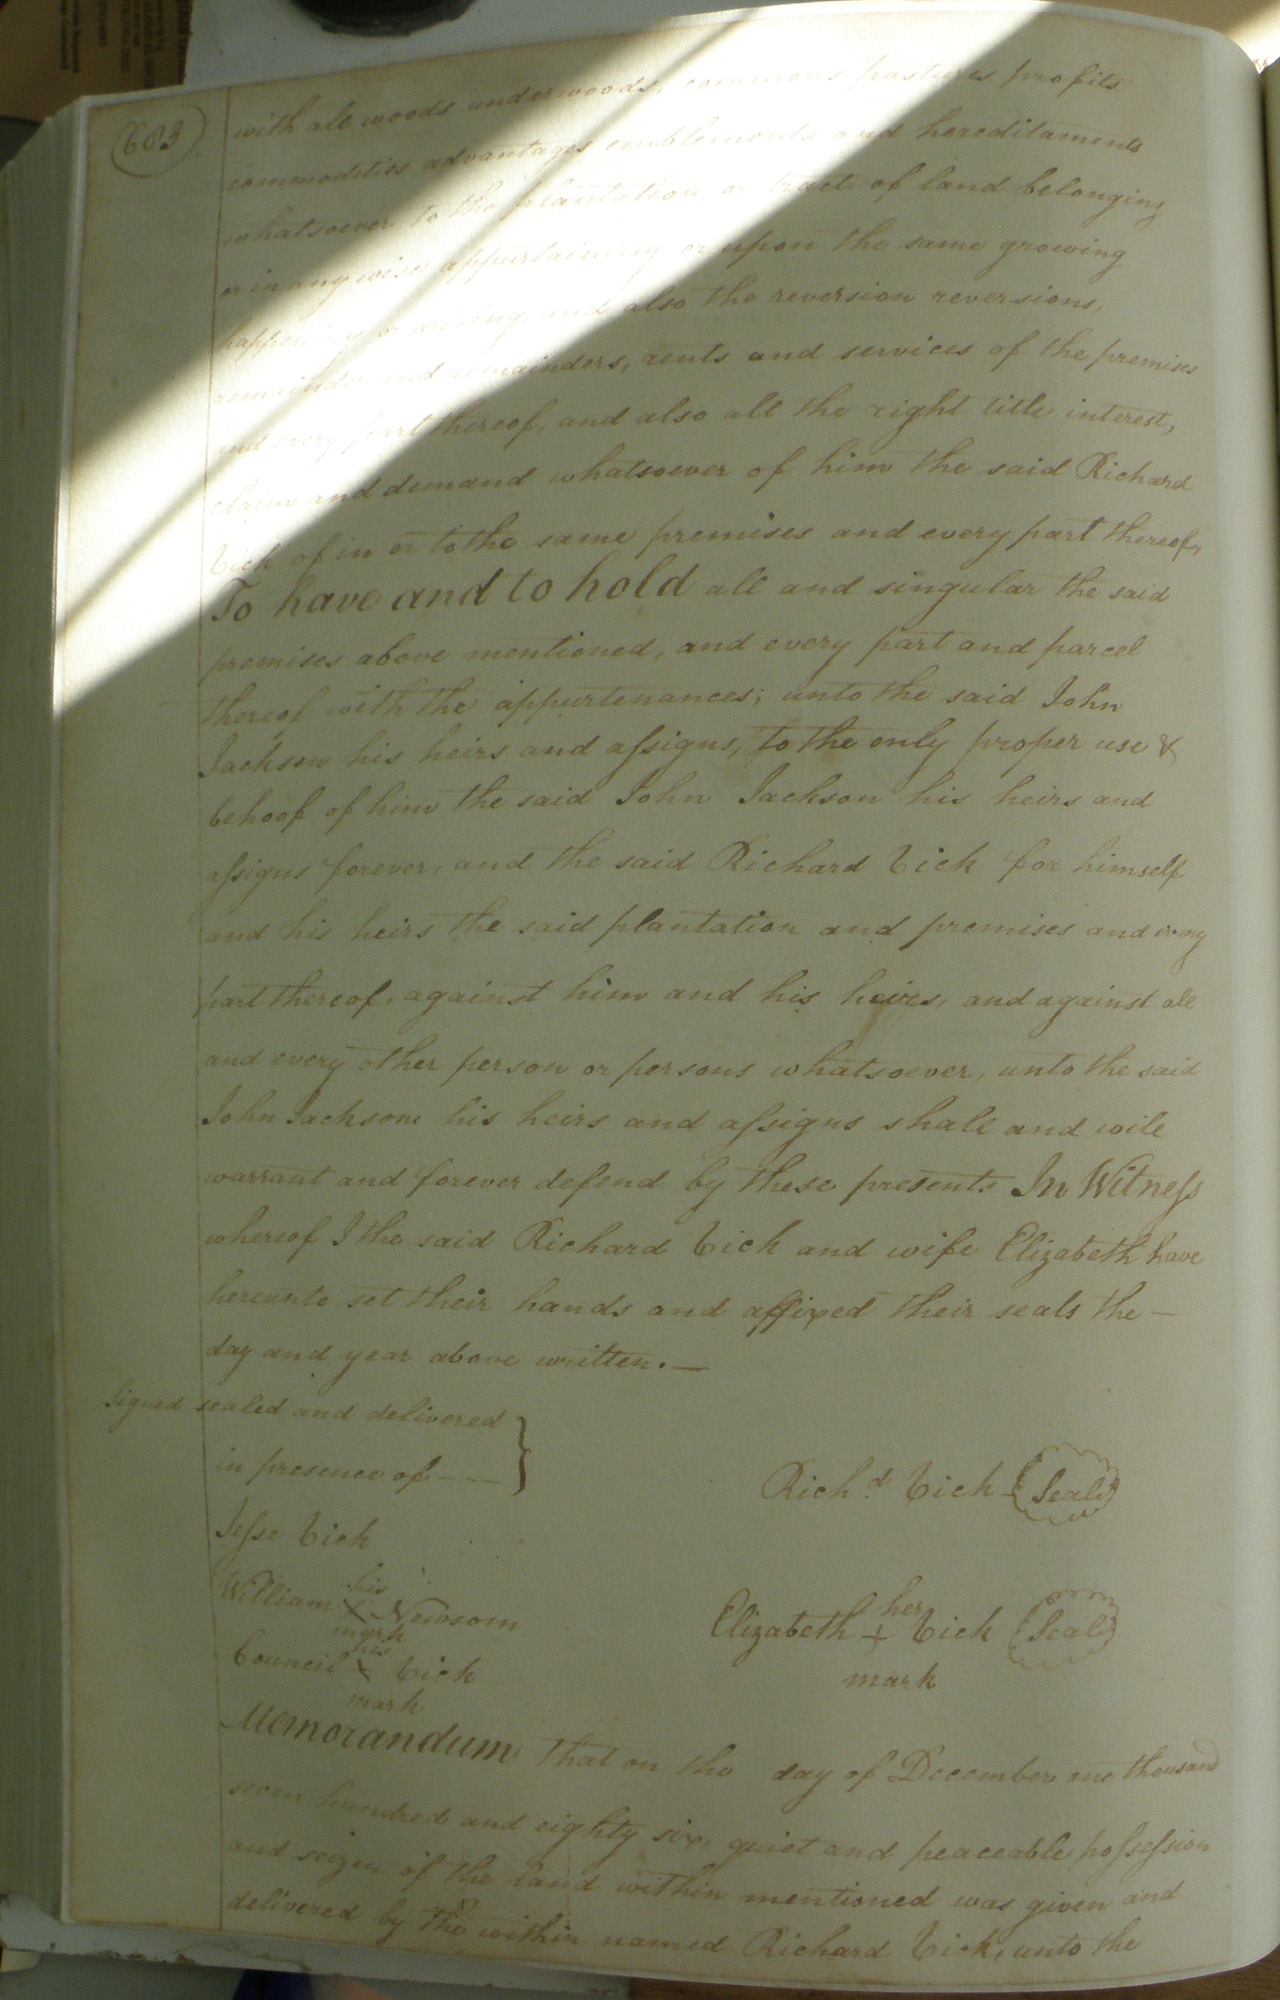 683
with all woods underwoods, commons pastures profits
commodities advantages emblements and hereditaments
whatsoever to the plantation or tract of land belonging
or in any wise appurtaining or upon the same growing
happening or arising, and also the reversion reversions,
remainder and remainders, rents and services of the premises
and every part thereof, and also all the right title interest,
claim and demand whatsoever of him the said Richard
Vick of in or to the same premises and every part thereof,
To have and to hold all and singular the said
premises above mentioned, and every part and parcel
thereof with the appurtenances; unto the said John
Jackson his heirs and assigns, to the only proper use &
behoof of him the said John Jackson his heirs and
assigns forever, and the said Richard Vick for himself
and his heirs the said plantation and premises and every
part thereof, against him and his heirs, and against all
and every other person or persons whatsoever, unto the said
John Jackson his heirs and assigns shall and will
warrant and forever defend by these presents In Witness
whereof I the said Richard Vick and wife Elizabeth have
hereunto set their hands and affixed their seals the —
day and year above written. —
Signed sealed and delivered
in presence of - - -
Rich.d Vick Seal
Jesse Vick
his
William X Newsom
mark
her
Elizabeth + Vick Seal
mark
his
Council X Vick
mark
Memorandum that on the day of December one thousand
seven hundred and eighty six, quiet and peaceable possession
and seizen of the land within mentioned was given and
delivered by the within named Richard Vick, unto the